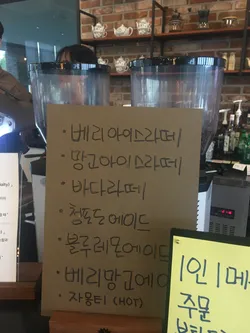 · 베리아이스라떼
· 망고아이스라떼
· 바다라떼
· 청포도에이드
· 블루레몬에이드
· 베리망고에이
· 자몽티 (HOT)
1인 1메
주문